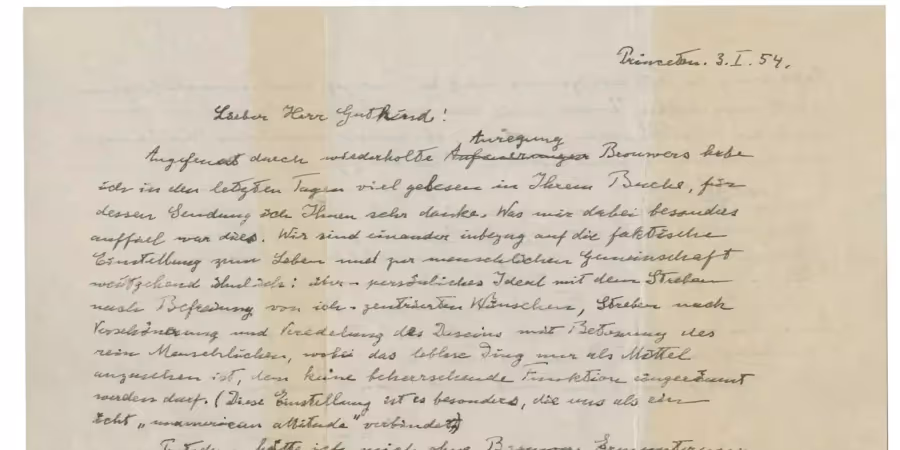 Princeton. 3. I. 54.
Lieber Herr Gutkind!
Anregung
Angefeuert durch wiederholte Brouwers habe
ich in den letzten Tagen viel gelesen in Ihrem Buche, für
dessen Sendung ich Ihnen sehr danke. Was mir dabei besonders
auffiel war dies. Wir sind einander inbezug auf die faktische
Einstellung zum Leben und zur menschlichen Gemeinschaft
weitgehend ähnlich: über-persönliches Ideal mit dem Streben
nach Befreiung von ich-zentrierten Wünschen, Streben nach
Verschönerung und Veredelung des Daseins mit Betonung des
rein Menschlichen, wobei das leblose Ding nur als Mittel
anzusehen ist, dem keine beherrschende Funktion eingeräumt
werden darf. (Diese Einstellung ist es besonders, die uns als ein
echt „unamerican attitude“ verbindet)
Trotzdem hätte ich mich ohne Brouwers Ermunterung